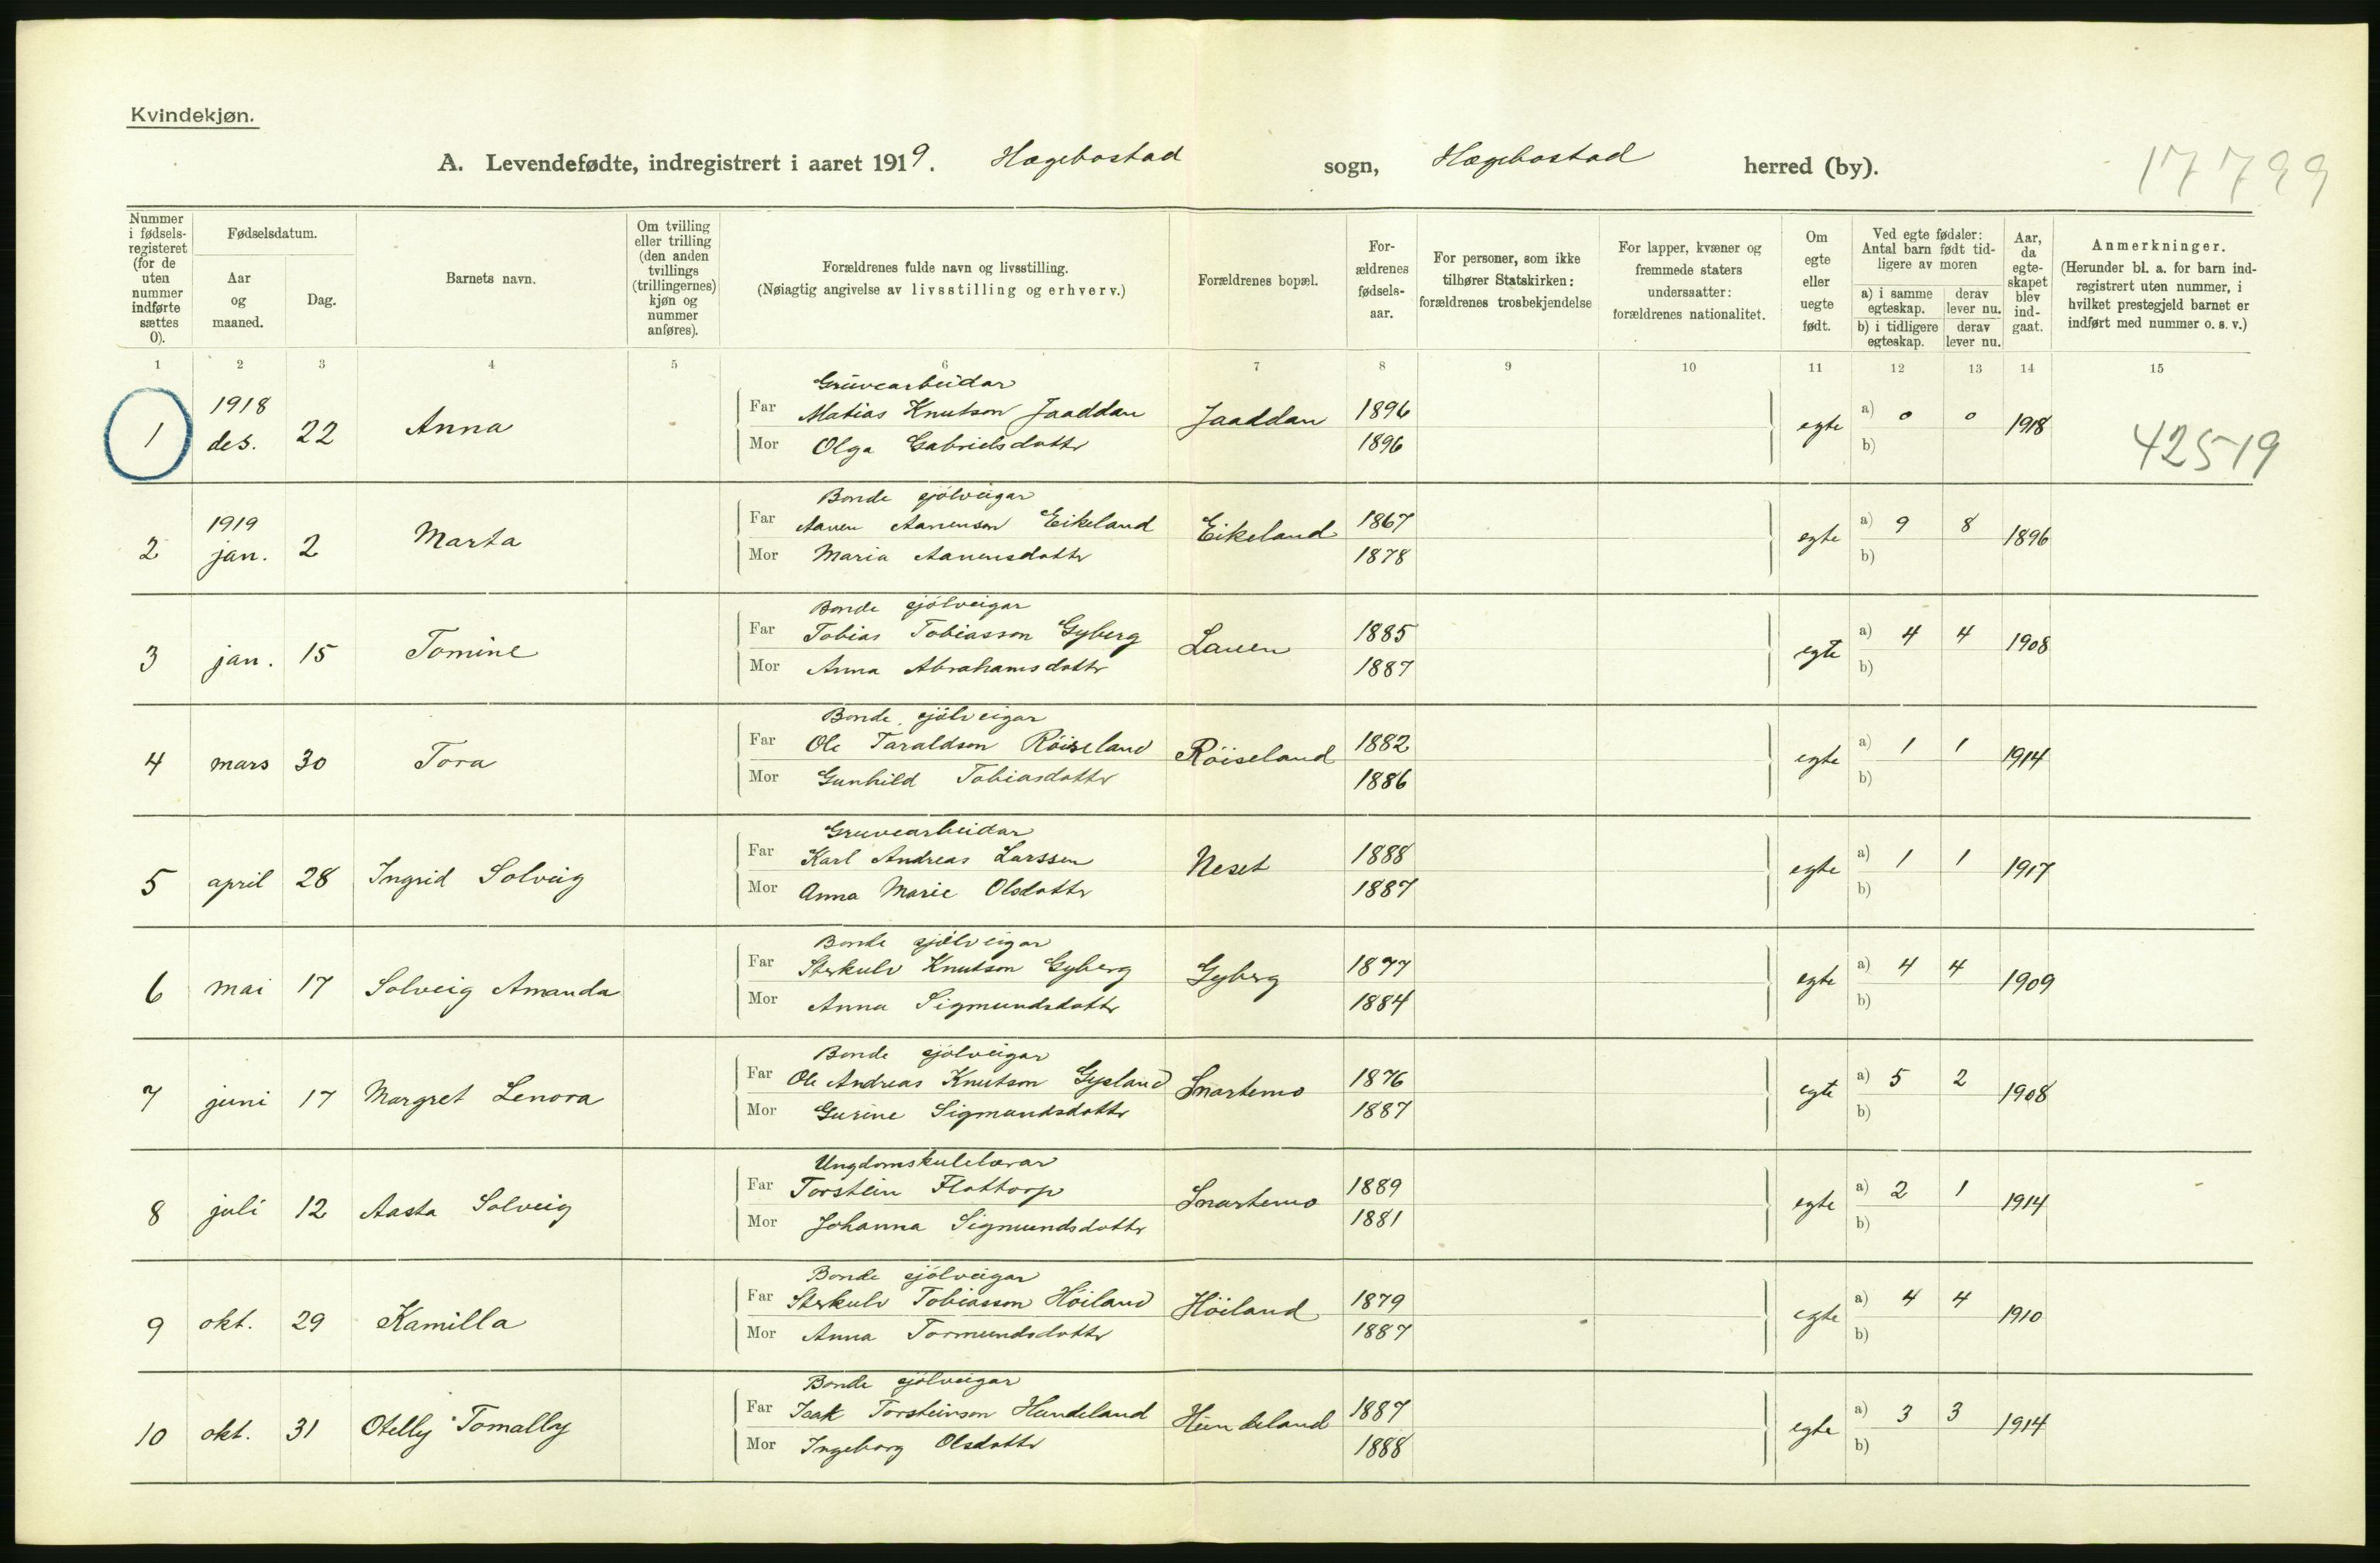 Kvindekjøn.
A. Levendefødte, indregistrert i aaret 1919. Hægebostad sogn, Hægebostad herred (by). 17799
Nummer i fødsels-registeret (for de uten nummer indførte sættes 0).
Fødselsdatum.
Aar og maaned.
Dag.
Barnets navn.
Om tvilling eller trilling (den anden tvillings (trillingernes) kjøn og nummer anføres).
Forældrenes fulde navn og livsstilling.
(Nøiagtig angivelse av livsstilling og erhverv.)
Forældrenes bopæl.
For-ældrenes fødsels-aar.
For personer, som ikke tilhører Statskirken: forældrenes trosbekjendelse
For lapper, kvæner og fremmede staters undersaatter: forældrenes nationalitet.
Om egte eller uegte født.
Ved egte fødsler: Antal barn født tid-ligere av moren
a) i samme egteskap. derav lever nu.
b) i tidligere egteskap. derav lever nu.
Aar, da egte-skapet blev ind-gaat.
Anmerkninger.
(Herunder bl. a. for barn ind-registrert uten nummer, i hvilket prestegjeld barnet er indført med nummer o. s. v.)
1 2 3 4 5 6 7 8 9 10 11 12 13 14 15
Gruvearbeidar
1 1918 des. 22 Anna Far Matias Knutson Jaaddan Jaaddan 1896 egte a) 0 0 1918 42519
Mor Olga Gabrielsdotter 1896 b)
Bonde sjölveigar
2 1919 jan. 2 Marta Far Aanen Aanenson Eikeland Eikeland 1867 egte a) 9 8 1896
Mor Maria Aanensdotter 1878 b)
Bonde sjölveigar
3 jan. 15 Tomine Far Tobias Tobiasson Gyberg Lauen 1885 egte a) 4 4 1908
Mor Anna Abrahamsdotter 1887 b)
Bonde, sjölveigar
4 mars 30 Tora Far Ole Taraldson Röiseland Röiseland 1882 egte a) 1 1 1914
Mor Gunhild Tobiasdotter 1886 b)
Gruvearbeidar
5 april 28 Ingrid Solveig Far Karl Andreas Larssen Neset 1888 egte a) 1 1 1917
Mor Anna Marie Olsdotter 1887 b)
Bonde sjölveigar
6 mai 17 Solveig Amanda Far Sterkulv Knutson Gyberg Gyberg 1877 egte a) 4 4 1909
Mor Anna Sigmundsdotter 1884 b)
Bonde sjölveigar
7 juni 17 Margret Lenora Far Ole Andreas Knutson Gysland Snartemo 1876 egte a) 5 2 1908
Mor Gurine Sigmundsdotter 1887 b)
Ungdomskulelærar
8 juli 12 Aasta Solveig Far Torstein Flottorp Snartemo 1889 egte a) 2 1 1914
Mor Johanna Sigmundsdotter 1881 b)
Bonde sjölveigar
9 okt. 29 Kamilla Far Sterkulv Tobiasson Höiland Höiland 1879 egte a) 4 4 1910
Mor Anna Tormundsdotter 1887 b)
Bonde sjölveigar
10 okt. 31 Otelly Tomally Far Isak Torsteinson Hundeland Hundeland 1887 egte a) 3 3 1914
Mor Ingeborg Olsdotter 1888 b)